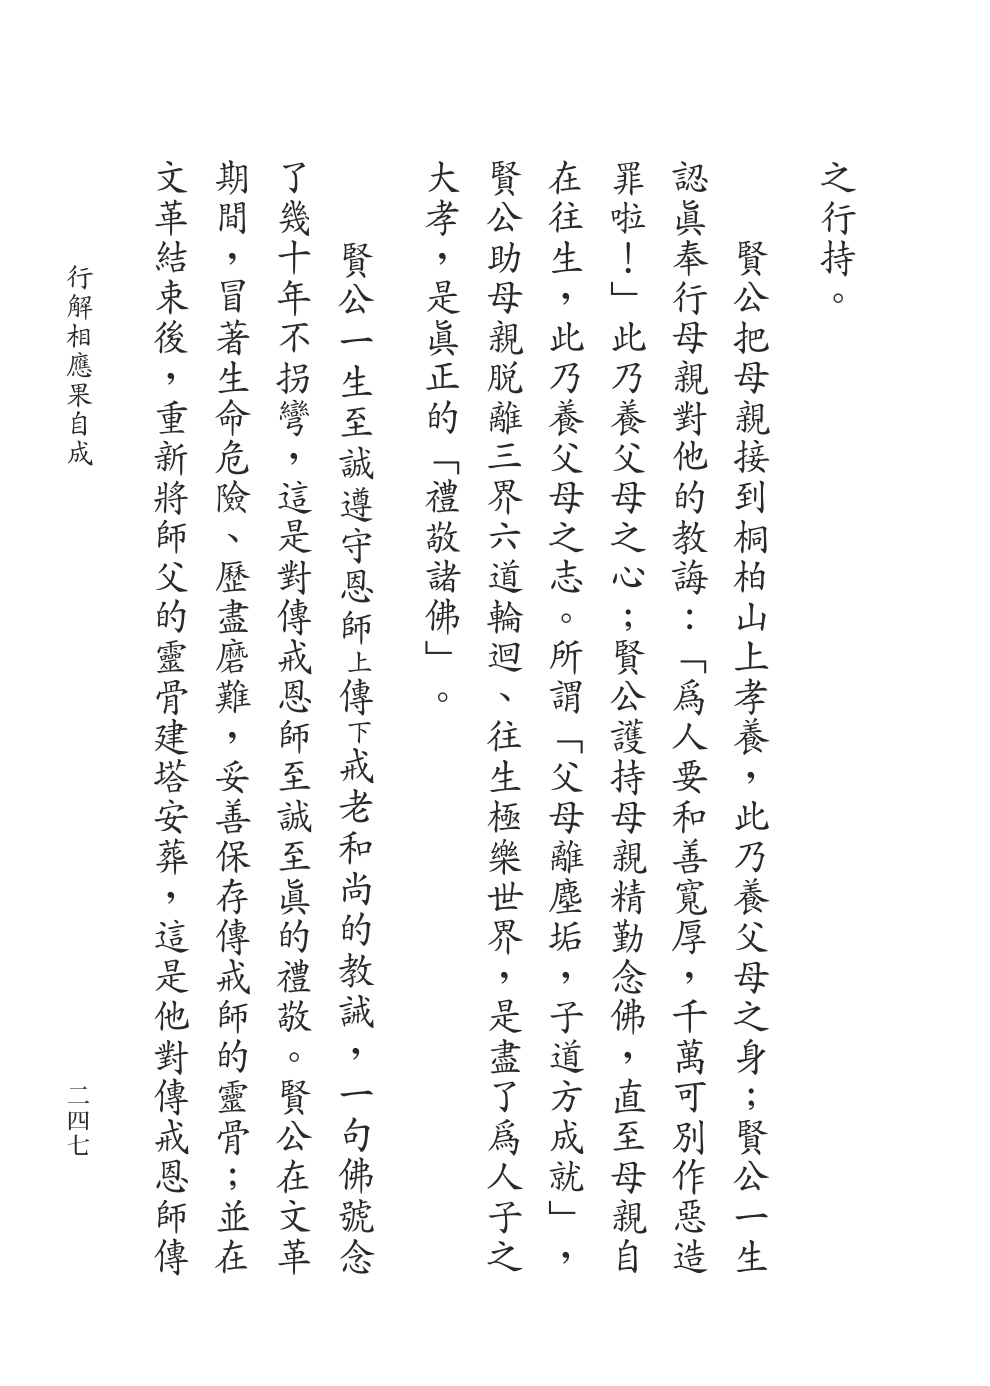 之行持。
賢公把母親接到桐柏山上孝養，此乃養父母之身；賢公一生
認眞奉行母親對他的教誨：「爲人要和善寬厚，千萬可別作惡造
罪啦！」此乃養父母之心；賢公護持母親精勤念佛，直至母親自
在往生，此乃養父母之志。所謂「父母離塵垢，子道方成就」，
賢公助母親脫離三界六道輪迴、往生極樂世界，是盡了爲人子之
大孝，是眞正的「禮敬諸佛」。
賢公一生至誠遵守恩師上傳下戒老和尚的教誡，一句佛號念
了幾十年不拐彎，這是對傳戒恩師至誠至眞的禮敬。賢公在文革
期間，冒著生命危險、歷盡磨難，妥善保存傳戒師的靈骨；並在
文革結束後，重新將師父的靈骨建塔安葬，這是他對傳戒恩師傳
行解相應果自成
二四七